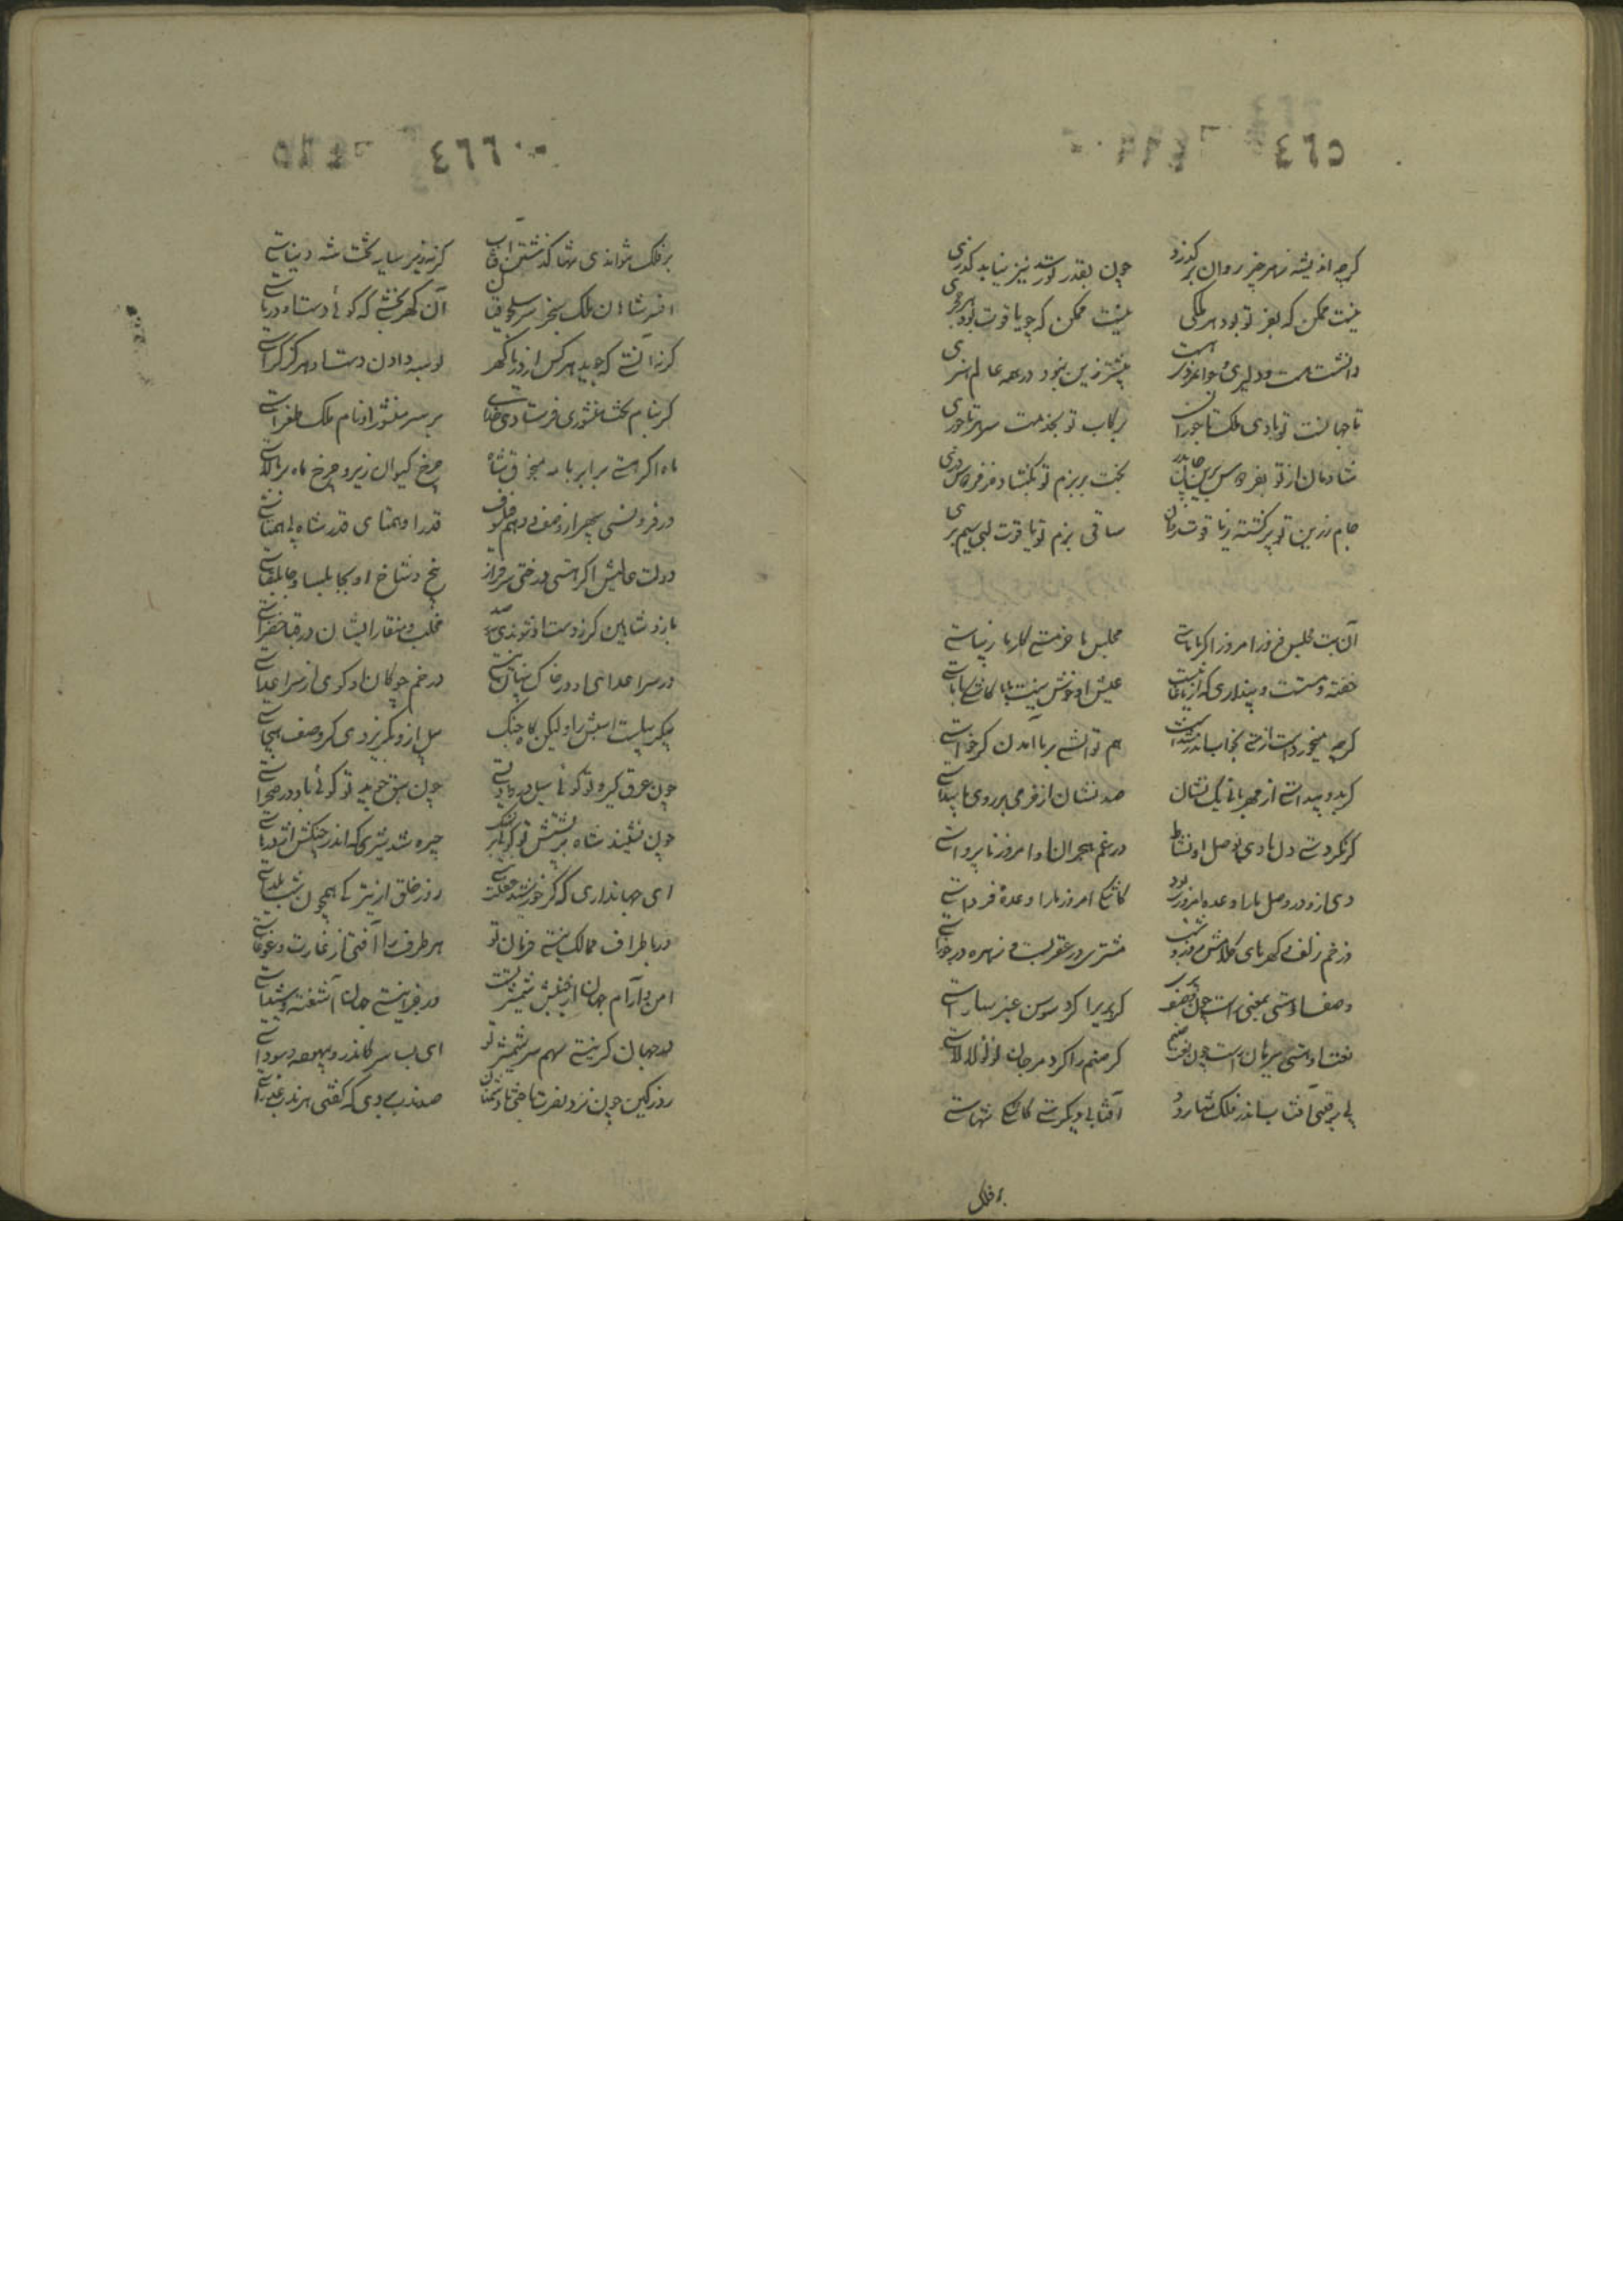 ٤٦٥
کرچه اندیشه زهر چیز روان برکذرد چون بقدر تو رسد نیز نیابد کذری
نیست ممکن که بفر تو بود هر ملکی نیست ممکن که چو یاقوت بود هر حجری
دانشت هست و دلیری و جوانمردی هست بیشتر زین نبود در همه عالم هنری
تا جهانست تو بادی ملک تاجوران برکاب تو بخدمت سر هر تاجوری
شادمان از تو بفردوس برین جان پدر بخت بر بزم تو بکشاد ز فردوس دری
جام زرین تو پر کشته ز یاقوت روان ساقی بزم تو یاقوت لبی سیم بری
آن بت مجلس فروز امروز اکر با ماستی مجلس ما خرمستی کار ما زیباستی
خفته و مستست و پنداری که از ما نیست عیش او خوش نیست بی ما کاشکی با ماستی
کرچه میخوردست از مستی بخواب اندر شدست هم توانستی بر ما آمدن کر خواستی
کر بدو پیداستی از مهربانی یک نشان صد نشان از خرمی بر روی ما پیداستی
کر نکردستی دل ما دی بوصل او نشاط در غم هجران او امروز ناپرواستی
دی ازو در وصل ما را وعده امروز بود کاشکی امروز ما را وعدهٔ فرداستی
در خم زلف و کهرهای کلاهش مشتری در عقربست و زهره در جوزاستی
وصف او هستی بمعنی راست چون کر پریرا کرد سوسن عنبر ساراستی
نعت او هستی ببرهان راست چون نعت صنم کر صنم را کرد مرجان لؤلؤ لالاستی
بی برقیبی آفتاب اندر فلک تنها رود آفتاب دیکرستی کاشکی تنهاستی
بر فلک
٤٦٦
بر فلک نتواندی تنها کذشتن آفتاب کر نه زیر سایه تخت شه دنیاستی
افسر شاهان ملک سنجر سر سلجوقیان آن کهربخشی که کوئی دست او دریاستی
کر نه آنستی که جوید هر کس از دریا کهر بوسه دادن دست او هرکز کراستی
کر بنام بخت منشوری فرستادی خدای بر سر منشور او نام ملک طغراستی
ماه اکر هستی برابر با مه منجوق شاه چرخ کیوان زیر و چرخ ماه بر بالاستی
ور فرونستی سپهر از وصف و وهم فیلسوف قدر او همتای قدر شاه بی همتاستی
دولت عالیش اکر هستی درختی سرفراز بیخ و شاخ او بجابلسا و جابلقاستی
باز و شاهین کر ز دست او شوندی مخلب و منقار ایشان در قبا خضراستی
ور سر اعدای او در خاک پنهان نیستی در خم چوکان او کوی از سر اعداستی
پیکر پیلست اسبش را ولیکن کاه جنک پیل ازو بکریزدی کر در صف هیجاستی
چون عرق کیرد تو کوئی سیل در وادیستی چون سبق جوید تو کوئی باد در صحراستی
چون نشیند شاه بر پشتش تو کوئی چیره شد شیری که اندر چنکش اژدرهاستی
ای جهانداری که کر خورشید روز خلق از تیرکی همچون شب یلداستی
ور باطراف ممالک نیستی فرمان تو هر طرف را آفتی از غارت و غوغاستی
امن و آرام جهان از جنبش شمشیر تست ور جز اینستی جهان آشفته و شیداستی
در جهان کر نیستی سهم سر شمشیر تو ای بسا سر کاندرو بیهوده سوداستی
روز کین چون نزد نصرت تاختی بر دشمنان صد زبان بودی که کفتی هر زبان عذراستی